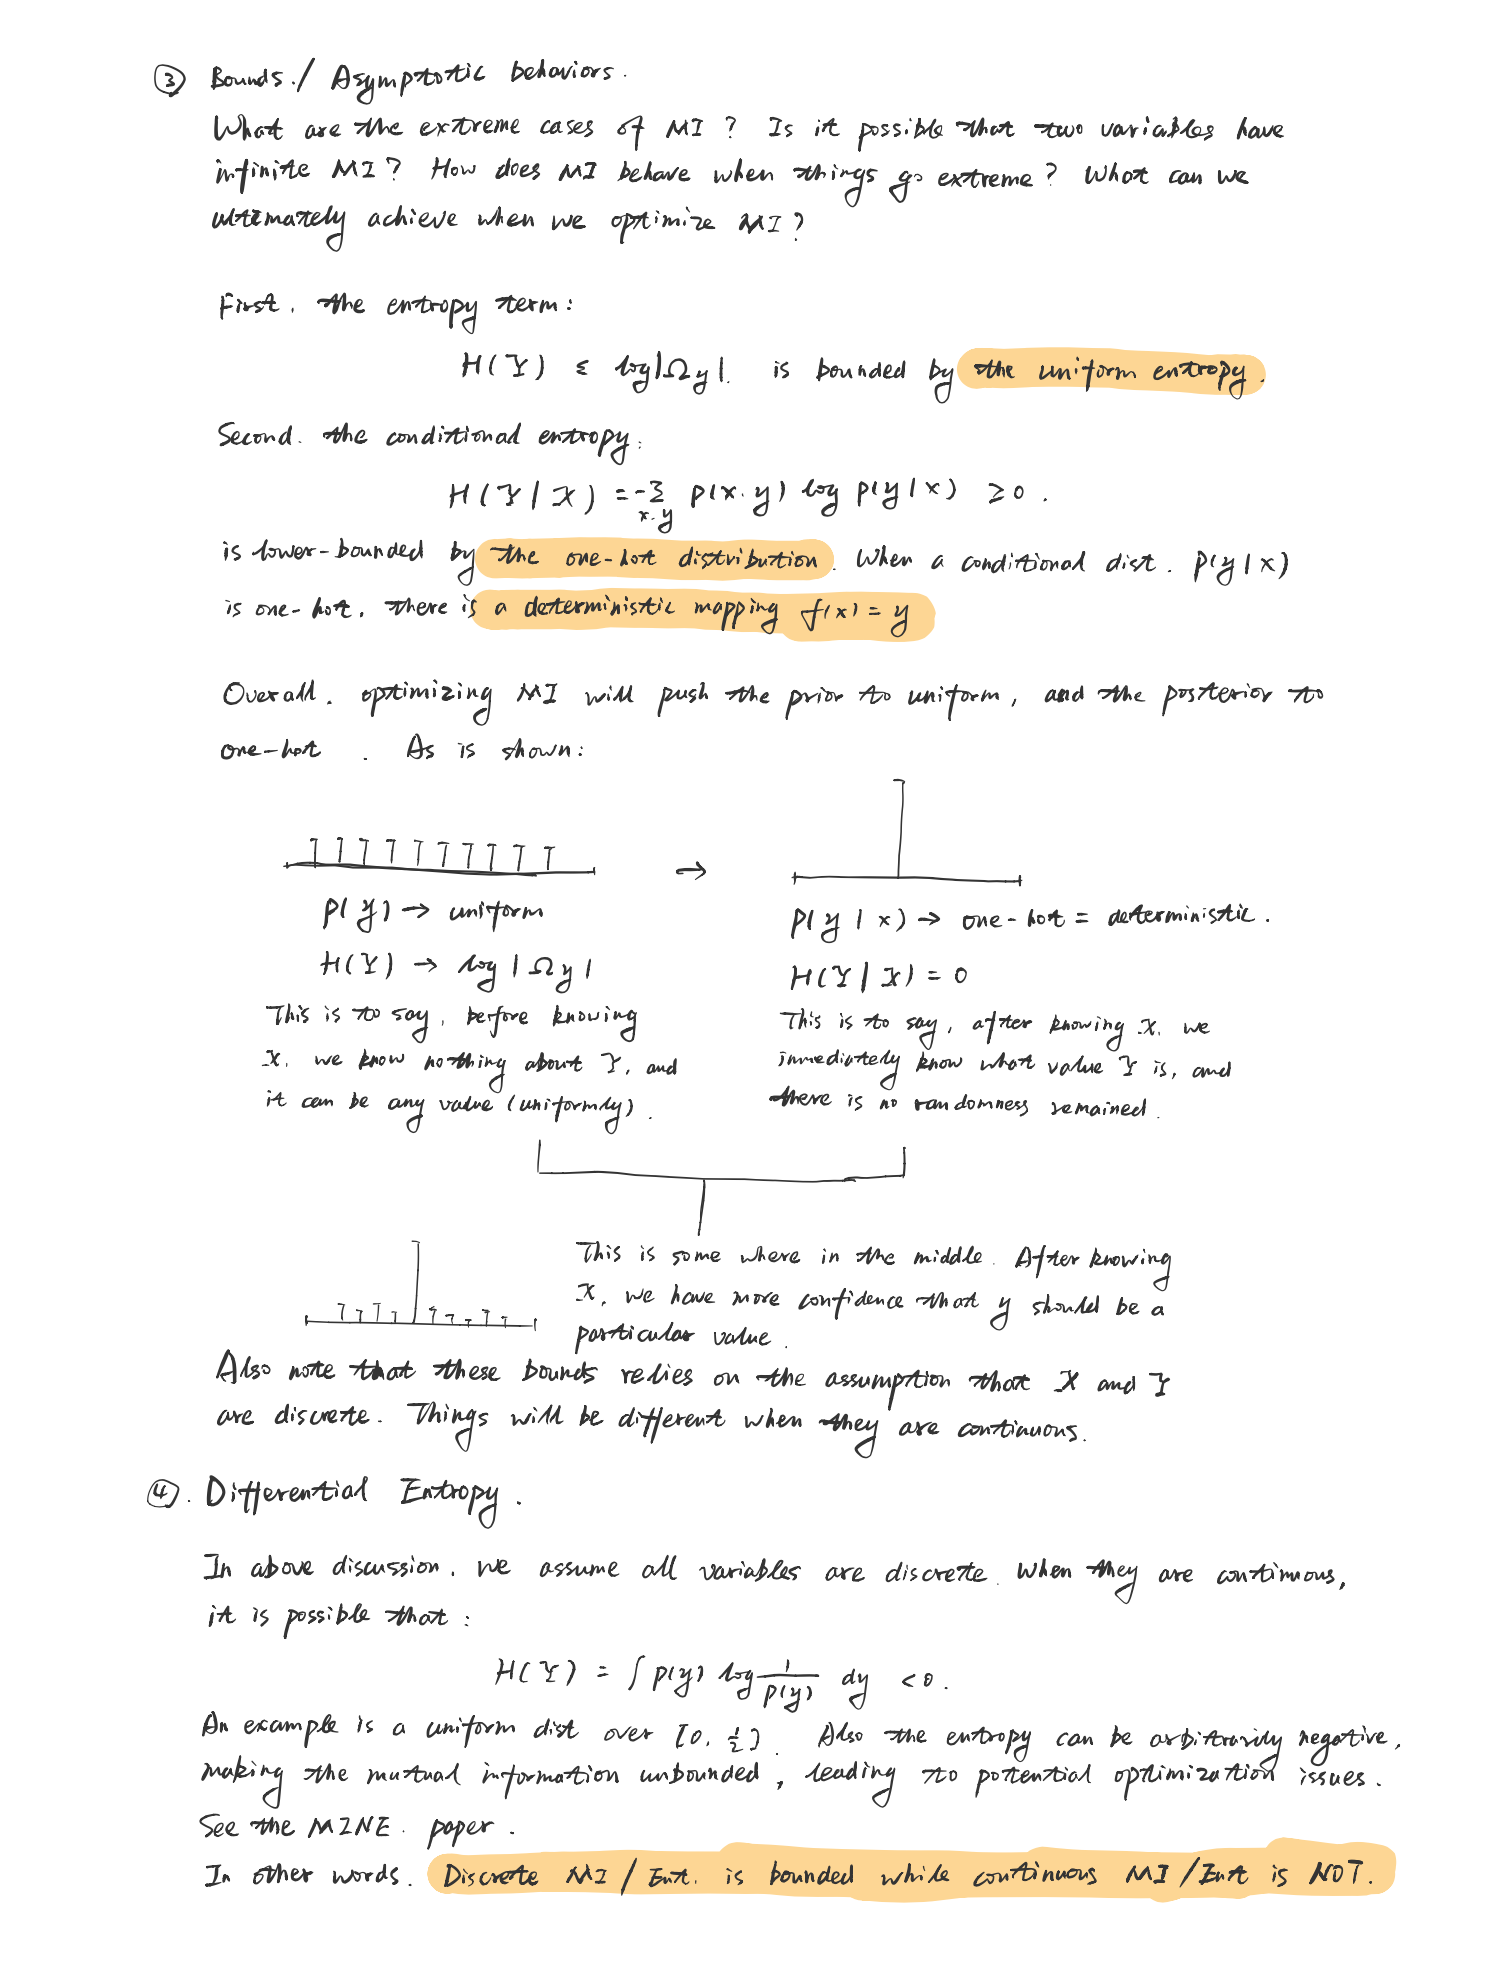 ③ Bounds. / Asymptotic behaviors.
What are the extreme cases of MI? Is it possible that two variables have
infinite MI? How does MI behave when things go extreme? What can we
ultimately achieve when we optimize MI?
First. the entropy term:
H(Y) ≤ log|Ω_y|. is bounded by the uniform entropy.
Second. the conditional entropy:
H(Y|X) = -∑_{x.y} p(x.y) log p(y|x) ≥ 0.
is lower-bounded by the one-hot distribution. When a conditional dist. p(y|x)
is one-hot. there is a deterministic mapping f(x) = y
Overall. optimizing MI will push the prior to uniform, and the posterior to
one-hot. As is shown:
→
p(y) → uniform
H(Y) → log|Ω_y|
This is to say, before knowing
X. we know nothing about Y, and
it can be any value (uniformly).
p(y|x) → one-hot = deterministic.
H(Y|X) = 0
This is to say, after knowing X. we
immediately know what value Y is, and
there is no randomness remained.
This is some where in the middle. After knowing
X, we have more confidence that y should be a
particular value.
Also note that these bounds relies on the assumption that X and Y
are discrete. Things will be different when they are continuous.
④. Differential Entropy.
In above discussion. we assume all variables are discrete. When they are continuous,
it is possible that:
H(Y) = ∫ p(y) log 1/p(y) dy < 0.
An example is a uniform dist over [0, 1/2]. Also the entropy can be arbitrarily negative,
making the mutual information unbounded, leading to potential optimization issues.
See the MINE. paper.
In other words. Discrete MI / Ent. is bounded while continuous MI / Ent is NOT.